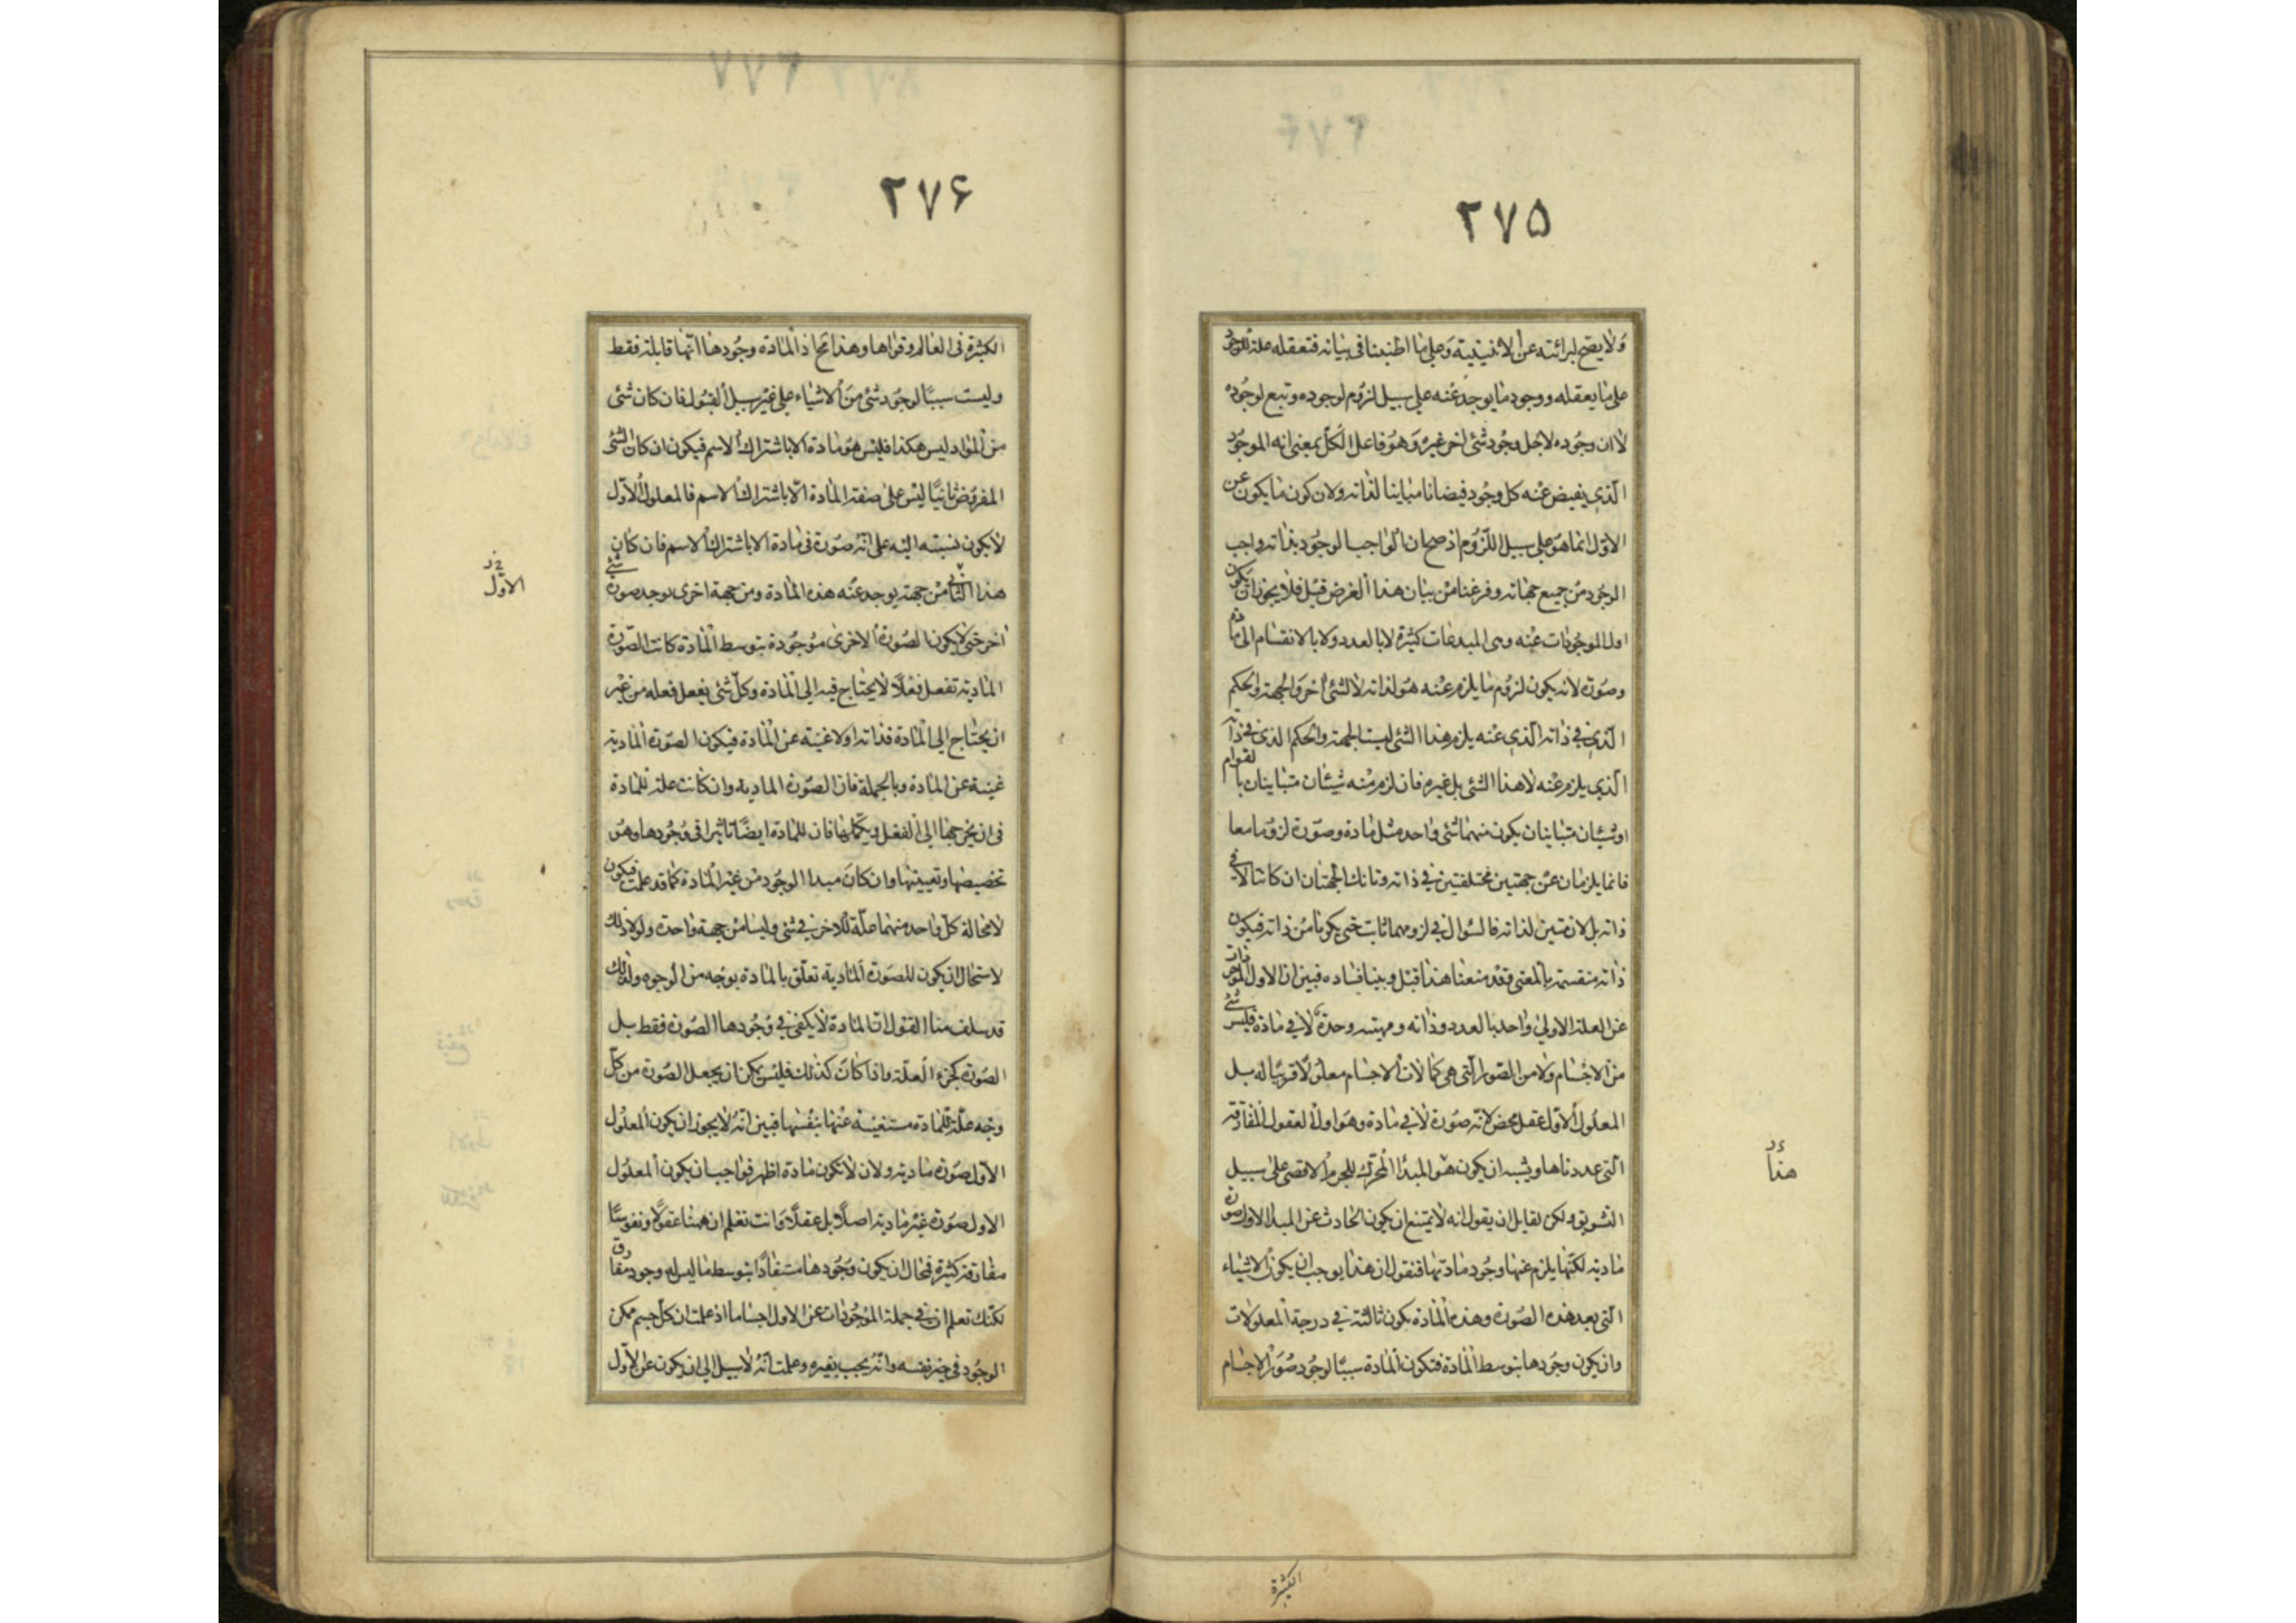 ٢٧۵
ولا يصح لبرائته عن الاثنينية وعلى ما اطنبنا فى بيانه فتعقله علة للوجود
على ما يعقله ووجود ما يوجد عنه على سبيل لزوم لوجوده وتبع لوجوده
لا ان وجوده لاجل وجود شئ اخر غيره وهو فاعل الكل بمعنى انه الموجود
الذى يفيض عنه كل وجود فيضانا مباينا لذاته ولان كون ما يكون عن
الاول انما هو على سبيل اللزوم اذ صح ان الواجب الوجود بذاته واجب
الوجود من جميع جهاته وفرغنا من بيان هذا الغرض قبل فلا يجوز ان يكون
اول الموجودات عنه وهى المبدعات كثيرة لا بالعدد ولا بالانقسام الى مادة
وصورة لانه يكون لزوم ما يلزم عنه هو لذاته لا لشئ اخر والجهة والحكم
الذى فى ذاته الذى عنه يلزم هذا الشئ ليست الجهة والحكم الذى فى ذاته
الذى يلزم عنه لا هذا الشئ بل غيره فان لزم منه شيئان متباينان بالقوام
او شيئان متباينان يكون منهما شئ واحد مثل مادة وصورة لزوما معا
فانما يلزمان عن جهتين مختلفتين فى ذاته وتانك الجهتان ان كانتا لا فى
ذاته بل لازمتين لذاته فالسؤال فى لزومهما ثابت حتى يكونا من ذاته فيكون
ذاته منقسمة بالمعنى وقد منعنا هذا قبل وبينا فساده فبين ان اول الموجودات
عن العلة الاولى واحد بالعدد وذاته ومهيته وحدة لا فى مادة فليس شئ
من الاجسام ولا من الصور التى هى كمالات الاجسام معلولا قريبا له بل
المعلول الاول عقل محض لانه صورة لا فى مادة وهو اول العقول المفارقة
التى عددناها ويشبه ان يكون هو المبدا المحرك للجرم الاقصى على سبيل
هذا
التشويق ولكن لقايل ان يقول انه لا يمتنع ان يكون الحادث عن المبدا الاول صورة
مادية لكنها يلزم عنها وجود مادتها فنقول ان هذا يوجب ان يكون الاشياء
التى بعد هذه الصورة وهذه المادة يكون ثالثة فى درجة المعلولات
وان يكون وجودها بتوسط المادة فتكون المادة سببا لوجود صور الاجسام
الكثيرة
٢٧۶
الكثيرة فى العالم وقواها وهذا محال اذ المادة وجودها انها قابلة فقط
وليست سببا لوجود شئ من الاشياء على غير سبيل القبول فان كان شئ
من المواد ليس هكذا فليس هو مادة الا باشتراك الاسم فيكون ان كان الشئ
المفروض ثانيا ليس على صفة المادة الا باشتراك الاسم فالمعلول الاول
لا يكون نسبته اليه على انه صورة فى مادة الا باشتراك الاسم فان كان
الاول
هذا الثانى من جهة يوجد عنه هذه المادة ومن جهة اخرى يوجد صورة شئ
اخر حتى لا يكون الصورة الاخرى موجودة بتوسط المادة كانت الصورة
المادية تفعل فعلا لا يحتاج فيه الى المادة وكل شئ يفعل فعله من غير
ان يحتاج الى المادة فذاته اولا غنية عن المادة فيكون الصورة المادية
غنية عن المادة وبالجملة فان الصورة المادية وان كانت علة للمادة
فى ان يخرجها الى الفعل ويكملها فان للمادة ايضا تاثيرا فى وجودها وهو
تخصيصها وتعيينها وان كان مبدا الوجود من غير المادة كما قد علمت فيكون
لا محالة كل واحد منهما علة للاخر فى شئ وليسا من جهة واحدة ولولا ذلك
لاستحال ان يكون للصورة المادية تعلق بالمادة بوجه من الوجوه ولذلك
قد سلف منا القول ان المادة لا يكفى فى وجودها الصورة فقط بل
الصورة كجزء العلة واذا كان كذلك فليس يمكن ان يجعل الصورة من كل
وجه علة للمادة مستغنية عنها بنفسها فبين انه لا يجوز ان يكون المعلول
الاول صورة مادية ولان لا تكون مادة اظهر فواجب ان يكون المعلول
الاول صورة غير مادية اصلا بل عقلا وانت تعلم ان ههنا عقولا ونفوسا
مفارقة كثيرة فمحال ان يكون وجودها مستفادا بتوسط ما ليس له وجود مفارق
لكنك تعلم ان فى جملة الموجودات عن الاول اجساما اذ علمت ان كل جسم ممكن
الوجود فى حيز نفسه وانه يجب بغيره وعلمت انه لا سبيل الى ان يكون عن الاول